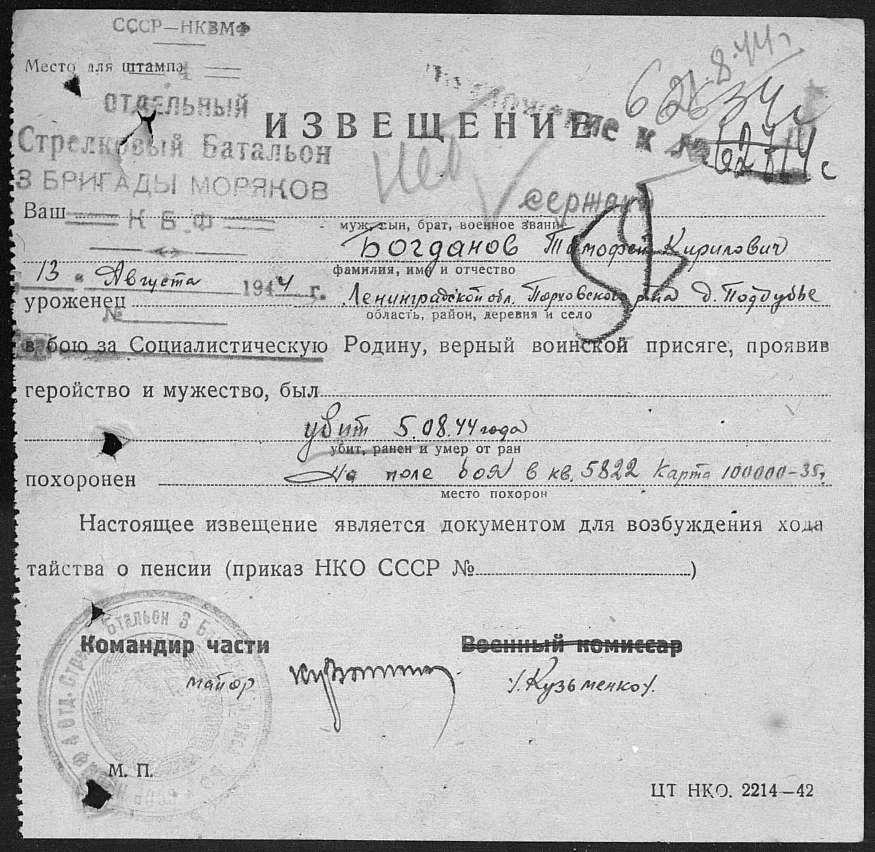 СССР—НКВМФ
Место для штампа
4
ОТДЕЛЬНЫЙ
Стрелковый Батальон
3 БРИГАДЫ МОРЯКОВ
К Б Ф
13 " Августа 1944 г.
№
8.44г
к №
ИЗВЕЩЕНИЕ
Ваш сержант
муж, сын, брат, военное звание
Богданов Тимофей Кирилович
фамилия, имя и отчество
уроженец Ленинградской обл. Порховского р-на д. Поддубье
область, район, деревня и село
в бою за Социалистическую Родину, верный воинской присяге, проявив
геройство и мужество, был
убит 5.08.44 года
убит, ранен и умер от ран
похоронен На поле боя в кв. 5822 Карта 100000-35г.
место похорон
Настоящее извещение является документом для возбуждения хода
тайства о пенсии (приказ НКО СССР № )
Командир части Военный комиссар
майор /Кузьменко/.
М. П.
ЦТ НКО. 2214—42